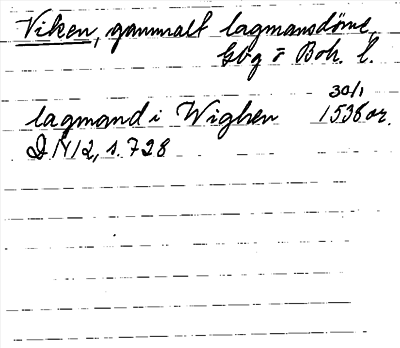 Viken, gammalt lagmansdöme,
Gbg o Boh. l.
30/1
lagmand i Wighen 1536 or.
D N 12, s. 728